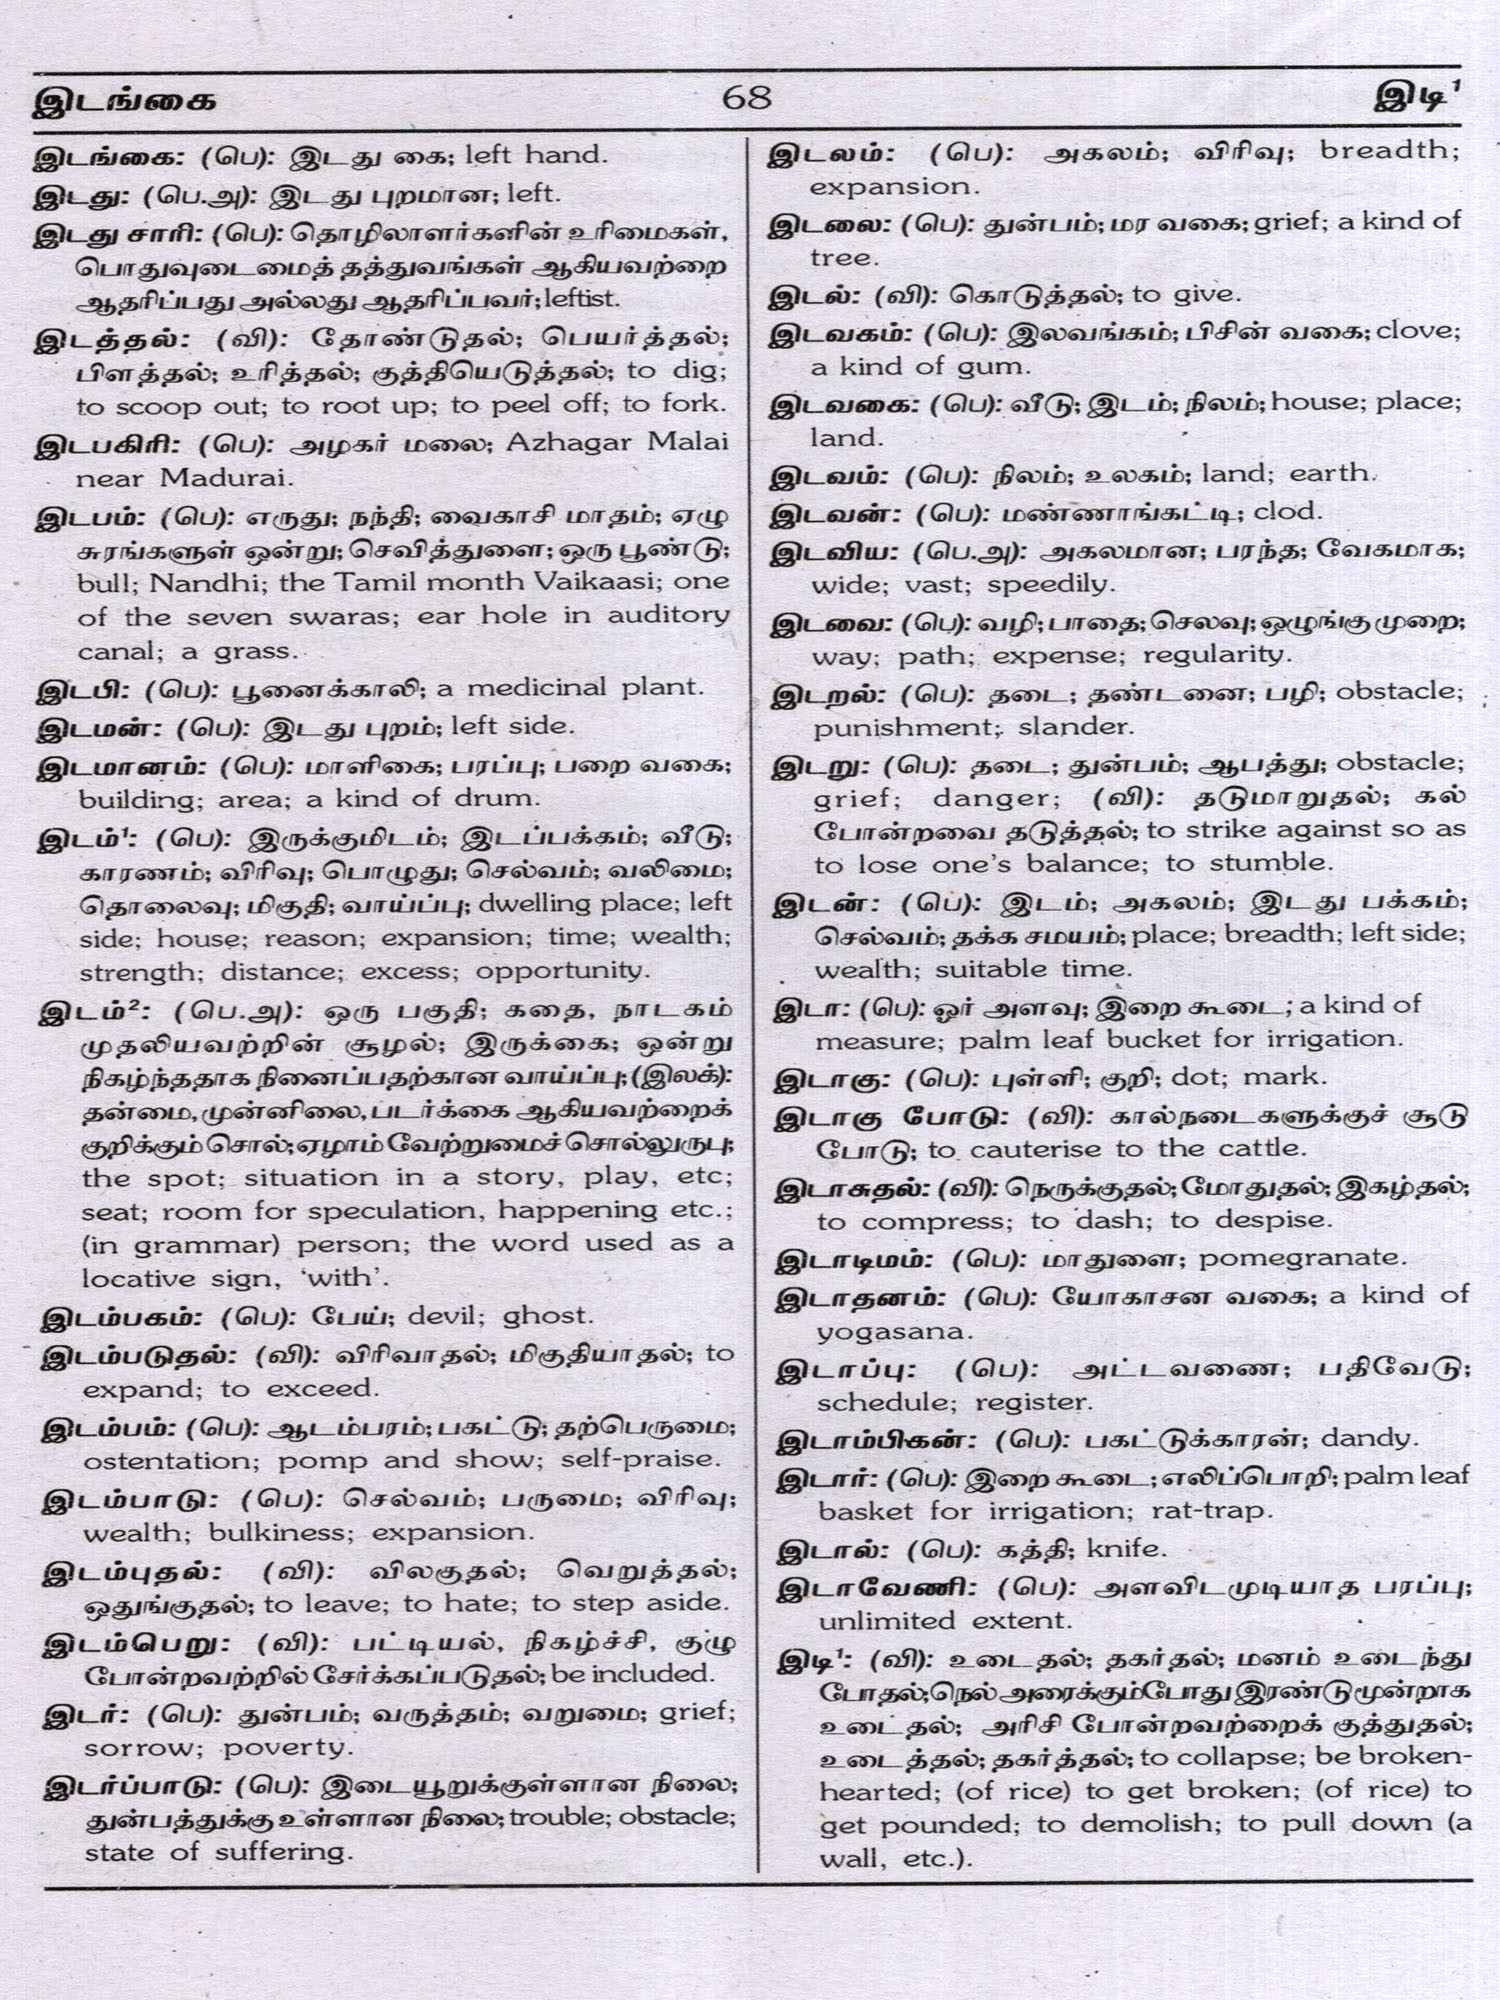 இடங்கை 68 இடி¹
இடங்கை: (பெ): இடது கை; left hand.
இடது: (பெ.அ): இடது புறமான; left.
இடது சாரி: (பெ): தொழிலாளர்களின் உரிமைகள்,
பொதுவுடைமைத் தத்துவங்கள் ஆகியவற்றை
ஆதரிப்பது அல்லது ஆதரிப்பவர்; leftist.
இடத்தல்: (வி): தோண்டுதல்; பெயர்த்தல்;
பிளத்தல்; உரித்தல்; குத்தியெடுத்தல்; to dig;
to scoop out; to root up; to peel off; to fork.
இடபகிரி: (பெ): அழகர் மலை; Azhagar Malai
near Madurai.
இடபம்: (பெ): எருது; நந்தி; வைகாசி மாதம்; ஏழு
சுரங்களுள் ஒன்று; செவித்துளை; ஒரு பூண்டு;
bull; Nandhi; the Tamil month Vaikaasi; one
of the seven swaras; ear hole in auditory
canal; a grass.
இடபி: (பெ): பூனைக்காலி; a medicinal plant.
இடமன்: (பெ): இடது புறம்; left side.
இடமானம்: (பெ): மாளிகை; பரப்பு; பறை வகை;
building; area; a kind of drum.
இடம்¹: (பெ): இருக்குமிடம்; இடப்பக்கம்; வீடு;
காரணம்; விரிவு; பொழுது; செல்வம்; வலிமை;
தொலைவு; மிகுதி; வாய்ப்பு; dwelling place; left
side; house; reason; expansion; time; wealth;
strength; distance; excess; opportunity.
இடம்²: (பெ.அ): ஒரு பகுதி; கதை, நாடகம்
முதலியவற்றின் சூழல்; இருக்கை; ஒன்று
நிகழ்ந்ததாக நினைப்பதற்கான வாய்ப்பு; (இலக்):
தன்மை, முன்னிலை, படர்க்கை ஆகியவற்றைக்
குறிக்கும் சொல்; ஏழாம் வேற்றுமைச் சொல்லுருபு;
the spot; situation in a story, play, etc;
seat; room for speculation, happening etc.;
(in grammar) person; the word used as a
locative sign, ‘with’.
இடம்பகம்: (பெ): பேய்; devil; ghost.
இடம்படுதல்: (வி): விரிவாதல்; மிகுதியாதல்; to
expand; to exceed.
இடம்பம்: (பெ): ஆடம்பரம்; பகட்டு; தற்பெருமை;
ostentation; pomp and show; self-praise.
இடம்பாடு: (பெ): செல்வம்; பருமை; விரிவு;
wealth; bulkiness; expansion.
இடம்புதல்: (வி): விலகுதல்; வெறுத்தல்;
ஒதுங்குதல்; to leave; to hate; to step aside.
இடம்பெறு: (வி): பட்டியல், நிகழ்ச்சி, குழு
போன்றவற்றில் சேர்க்கப்படுதல்; be included.
இடர்: (பெ): துன்பம்; வருத்தம்; வறுமை; grief;
sorrow; poverty.
இடர்ப்பாடு: (பெ): இடையூறுக்குள்ளான நிலை;
துன்பத்துக்கு உள்ளான நிலை; trouble; obstacle;
state of suffering.
இடலம்: (பெ): அகலம்; விரிவு; breadth;
expansion.
இடலை: (பெ): துன்பம்; மர வகை; grief; a kind of
tree.
இடல்: (வி): கொடுத்தல்; to give.
இடவகம்: (பெ): இலவங்கம்; பிசின் வகை; clove;
a kind of gum.
இடவகை: (பெ): வீடு; இடம்; நிலம்; house; place;
land.
இடவம்: (பெ): நிலம்; உலகம்; land; earth.
இடவன்: (பெ): மண்ணாங்கட்டி; clod.
இடவிய: (பெ.அ): அகலமான; பரந்த; வேகமாக;
wide; vast; speedily.
இடவை: (பெ): வழி; பாதை; செலவு; ஒழுங்கு முறை;
way; path; expense; regularity.
இடறல்: (பெ): தடை; தண்டனை; பழி; obstacle;
punishment; slander.
இடறு: (பெ): தடை; துன்பம்; ஆபத்து; obstacle;
grief; danger; (வி): தடுமாறுதல்; கல்
போன்றவை தடுத்தல்; to strike against so as
to lose one’s balance; to stumble.
இடன்: (பெ): இடம்; அகலம்; இடது பக்கம்;
செல்வம்; தக்க சமயம்; place; breadth; left side;
wealth; suitable time.
இடா: (பெ): ஓர் அளவு; இறை கூடை; a kind of
measure; palm leaf bucket for irrigation.
இடாகு: (பெ): புள்ளி; குறி; dot; mark.
இடாகு போடு: (வி): கால்நடைகளுக்குச் சூடு
போடு; to cauterise to the cattle.
இடாசுதல்: (வி): நெருக்குதல்; மோதுதல்; இகழ்தல்;
to compress; to dash; to despise.
இடாடிமம்: (பெ): மாதுளை; pomegranate.
இடாதனம்: (பெ): யோகாசன வகை; a kind of
yogasana.
இடாப்பு: (பெ): அட்டவணை; பதிவேடு;
schedule; register.
இடாம்பிகன்: (பெ): பகட்டுக்காரன்; dandy.
இடார்: (பெ): இறை கூடை; எலிப்பொறி; palm leaf
basket for irrigation; rat-trap.
இடால்: (பெ): கத்தி; knife.
இடாவேணி: (பெ): அளவிடமுடியாத பரப்பு;
unlimited extent.
இடி¹: (வி): உடைதல்; தகர்தல்; மனம் உடைந்து
போதல்; நெல் அரைக்கும்போது இரண்டு மூன்றாக
உடைதல்; அரிசி போன்றவற்றைக் குத்துதல்;
உடைத்தல்; தகர்த்தல்; to collapse; be broken-
hearted; (of rice) to get broken; (of rice) to
get pounded; to demolish; to pull down (a
wall, etc.).